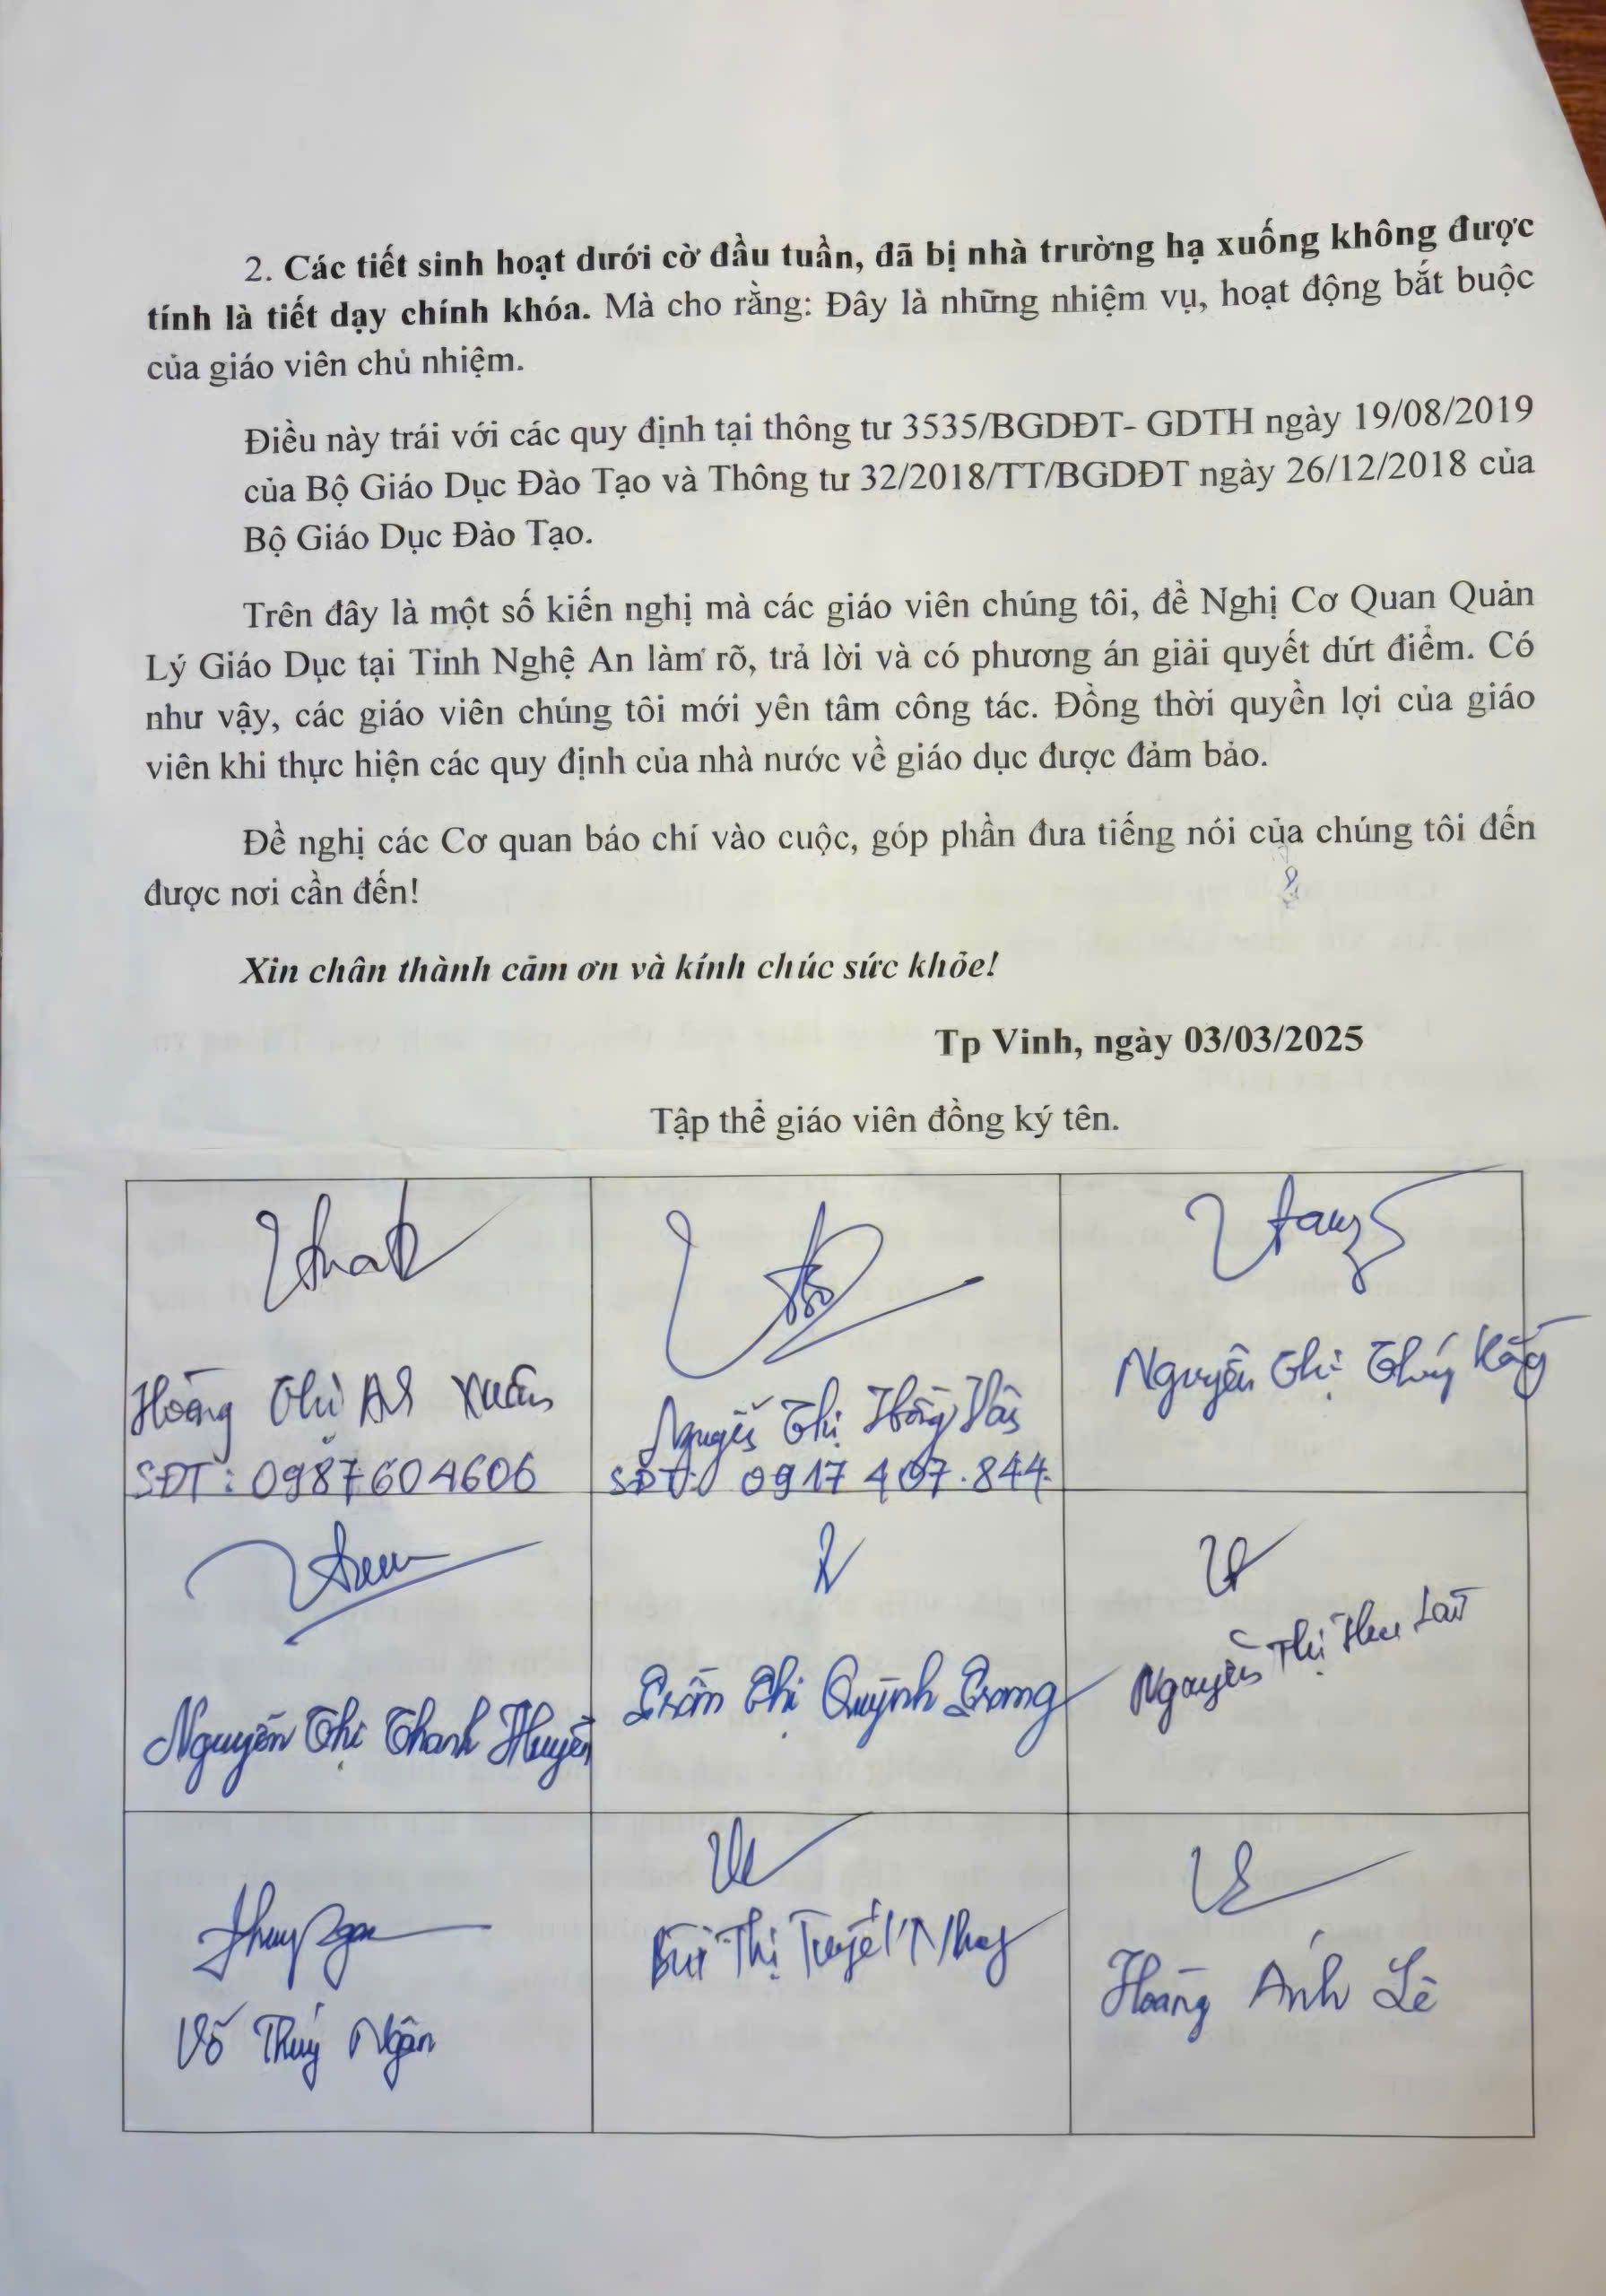 2. Các tiết sinh hoạt dưới cờ đầu tuần, đã bị nhà trường hạ xuống không được
tính là tiết dạy chính khóa. Mà cho rằng: Đây là những nhiệm vụ, hoạt động bắt buộc
của giáo viên chủ nhiệm.
Điều này trái với các quy định tại thông tư 3535/BGDĐT- GDTH ngày 19/08/2019
của Bộ Giáo Dục Đào Tạo và Thông tư 32/2018/TT/BGDĐT ngày 26/12/2018 của
Bộ Giáo Dục Đào Tạo.
Trên đây là một số kiến nghị mà các giáo viên chúng tôi, đề Nghị Cơ Quan Quản
Lý Giáo Dục tại Tỉnh Nghệ An làm rõ, trả lời và có phương án giải quyết dứt điểm. Có
như vậy, các giáo viên chúng tôi mới yên tâm công tác. Đồng thời quyền lợi của giáo
viên khi thực hiện các quy định của nhà nước về giáo dục được đảm bảo.
Đề nghị các Cơ quan báo chí vào cuộc, góp phần đưa tiếng nói của chúng tôi đến
được nơi cần đến!
Xin chân thành cảm ơn và kính chúc sức khỏe!
Tp Vinh, ngày 03/03/2025
Tập thể giáo viên đồng ký tên.
Hoàng Thị Xuân
Nguyễn Thị Hồng Vân
Nguyễn Thị Thúy Hằng
SĐT: 0987604606
SĐT: 0917 407.844
Nguyễn Thị Thanh Huyền
Trần Thị Quỳnh Trang
Nguyễn Thị Thu
Võ Thúy Ngân
Bùi Thị Tuyết Nhung
Hoàng Ánh Lê